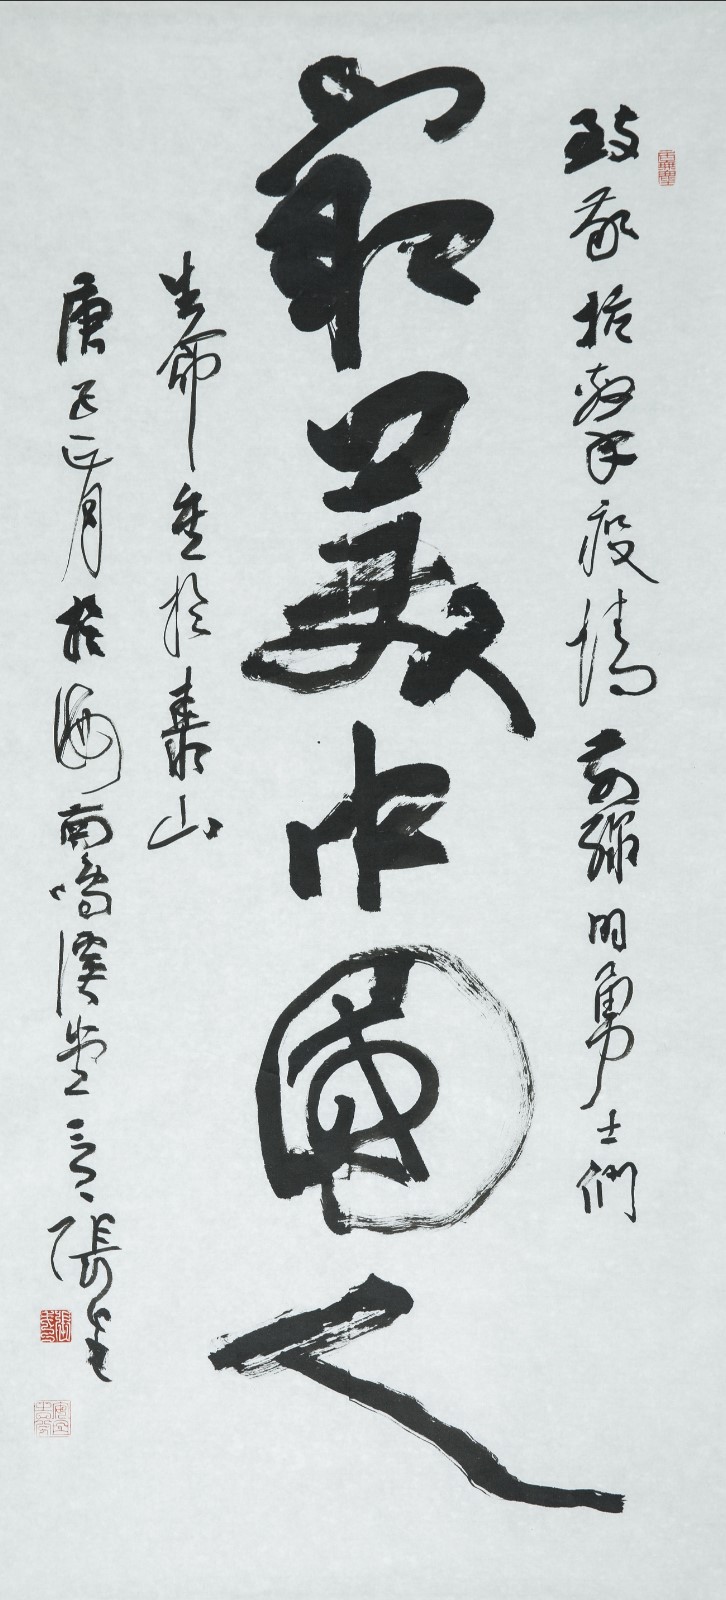 致敬抗擊疫情前線的勇士們
最美中國人
生命重於泰山
庚子正月於海南鳴溪堂言張